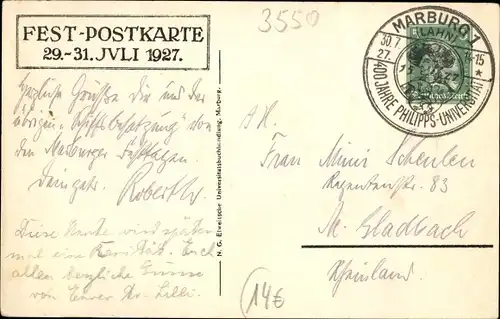 3550
FEST-POSTKARTE
29.-31. JVLI 1927.
MARBURG 1
(LAHN)
30.7
27.
-15
*
400 JAHRE PHILIPPS-UNIVERSITÄT
Herzliche Grüße Dir und der
übrigen "Schiffsbesatzung" von
den Marburger Festtagen.
Dein getr. Robert
Diese Karte wird später
mal eine Rarität. Euch
allen herzliche Grüsse
von Eurer Lilli.
N. G. Elwertsche Universitätsbuchhandlung, Marburg.
Frau Minni Scheulen
Regentenstr. 83
M. Gladbach
Rheinland.
14€